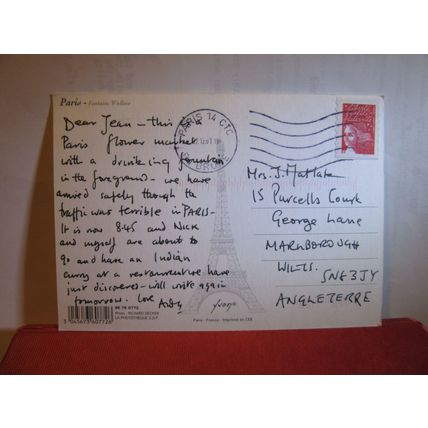 Paris - Fontaine Wallace
Dear Jean - this is a
Paris flower market
with a drinking fountain
in the foreground - we have
arrived safely though the
traffic was terrible in PARIS -
It is now 8.45 and Nick
and myself are about to
go and have an Indian
curry at a restaurant we have
just discovered - will write again
tomorrow. Love
PARIS 14 CTC
Mrs. J.
15 Purcells Court
George Lane
MARLBOROUGH
WILTS.
SN8 3JY
ANGLETERRE
Photo : RICHARD
LA PHOTOTHEQUE S.D.P.
3 045673 607726
yvon
Paris - France - Imprimé en CEE